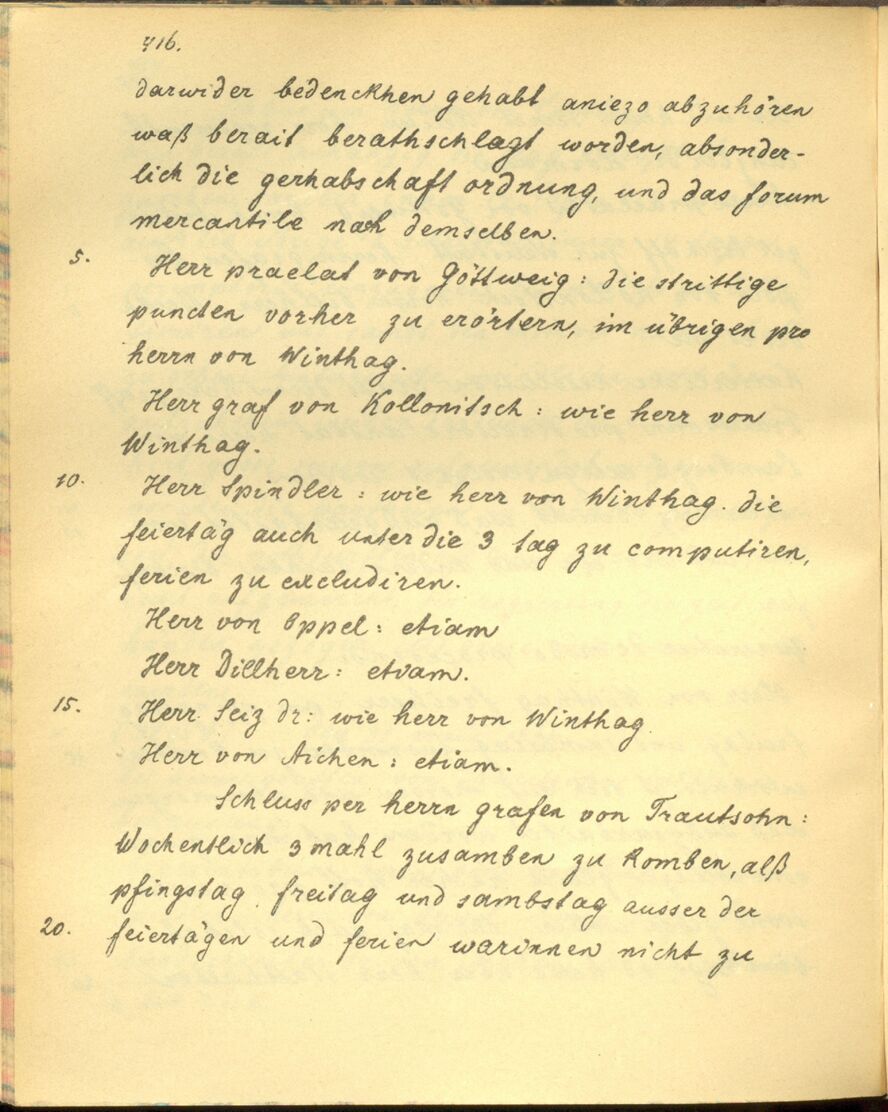 416.
darwider bedenckhen gehabt aniezo abzuhören
waß berait berathschlagt worden, absonder-
lich die gerhabschaft ordnung, und das forum
mercantile nach demselben.
5. Herr praelat von Göttweig: die strittige
puncten vorher zu erörtern, im übrigen pro
herrn von Winthag.
Herr graf von Kollonitsch: wie herr von
Winthag.
10. Herr Spindler: wie herr von Winthag. die
feiertäg auch unter die 3 tag zu computiren,
ferien zu excludiren.
Herr von Oppel: etiam
Herr Dillherr: etiam.
15. Herr Seiz dr: wie herr von Winthag
Herr von Aichen: etiam.
Schluss per herrn grafen von Trautsohn:
Wochentlich 3 mahl zusamben zu komben, alß
pfingstag, freitag und sambstag ausser der
20. feiertägen und ferien warinnen nicht zu